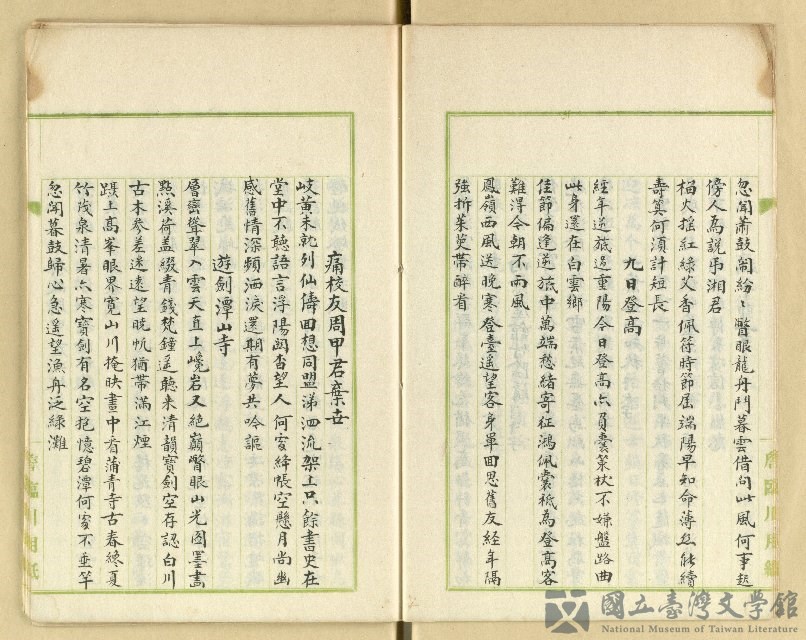 忽聞簫鼓鬧紛〻瞥眼龍舟鬥暮雲借問此風何事起
傍人為說弔湘君
榴火搖紅綠艾香佩符時節届端陽早知命薄絲能續
壽算何須計短長
九日登高
經年逆旅過重陽今日登高亦員囊策杖不嫌盤路曲
此身還在白雲鄉
佳節偏逢逆旅中萬端愁緒寄征鴻佩囊祗為登高客
難得今朝不雨風
鳳嶺西風送晚寒登臺遥望客身單回思舊友經年隔
強折茱萸帶醉看
痛校友周甲君棄世
岐黃未就列仙儔回想同盟涕泗流架上只餘書史在
堂中不聽語言浮陽關杳望人何處絳帳空懸月尚幽
感舊情深頻洒淚還期有夢共吟謳
遊劍潭山寺
層巒聳翠入雲天直上巉岩又絕巔瞥眼山光圖墨畫
點溪荷盖綴青錢梵鐘遥聽來清韻寶劍空存認白川
古木参差迷遠望晚帆猶帶滿江煙
踄上高峯眼界寬山川掩映畫中看蒲青寺古春終夏
竹茂泉清暑亦寒寶劍有名空抱憶碧潭何處不垂竿
忽聞暮鼓歸心急遥望漁舟泛綠灘
國立臺灣文學館
National Museum of Taiwan Literature